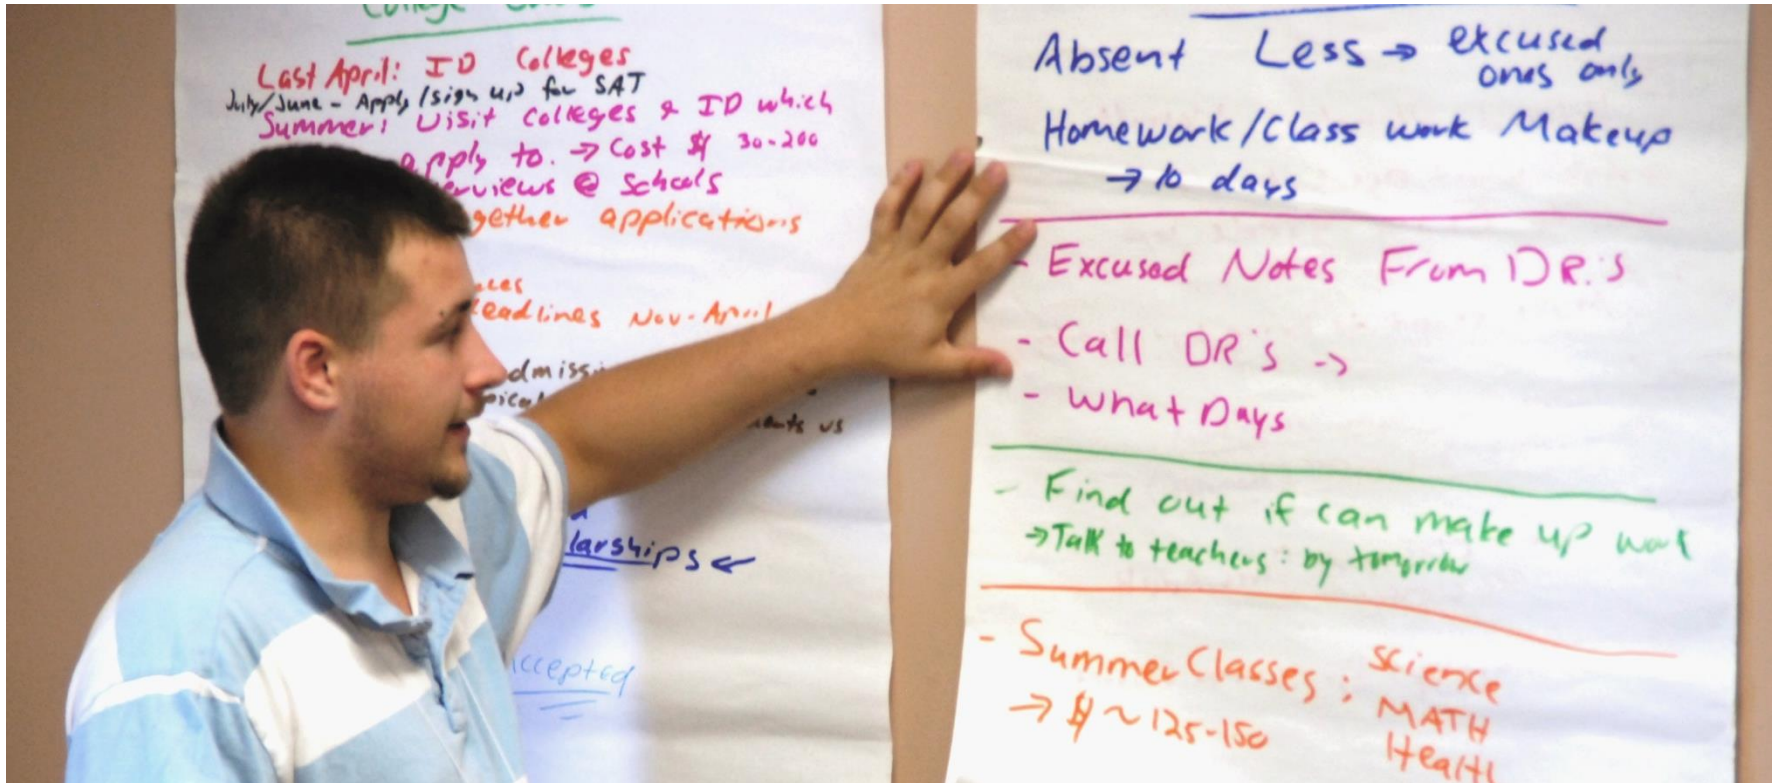 College
Last April: ID Colleges
July/June - Apply/sign up for SAT
Summer: Visit colleges & ID which
apply to. → Cost $ 30-200
erviews @ Schools
gether applications
eadlines Nov-April
dmiss
us
larships ←
accepted
Absent Less → excused
ones only
Homework/Class work Makeup
→ 10 days
- Excused Notes From DR.'s
- Call DR's ->
- What Days
- Find out if can make up work
→ Talk to teachers: by tomorrow
- Summer Classes: Science
MATH
Health
→ $ ~ 125-150